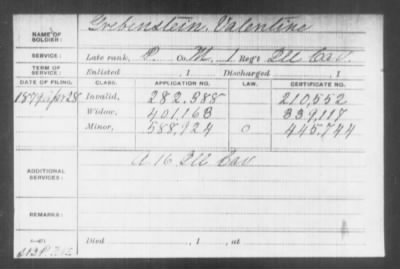 NAME OF SOLDIER: Grebenstein, Valentine
SERVICE: Late rank, P. Co. M, 1 Reg't Ill Cav.
TERM OF SERVICE: Enlisted , 1 Discharged , 1
DATE OF FILING. CLASS. APPLICATION NO. LAW. CERTIFICATE NO.
1879 Apr 28 Invalid, 282.388 210,552
Widow, 401,163 339,117
Minor, 588,924 O 445.744
ADDITIONAL SERVICES: A 16 Ill Cav
REMARKS:
Died , 1 , at